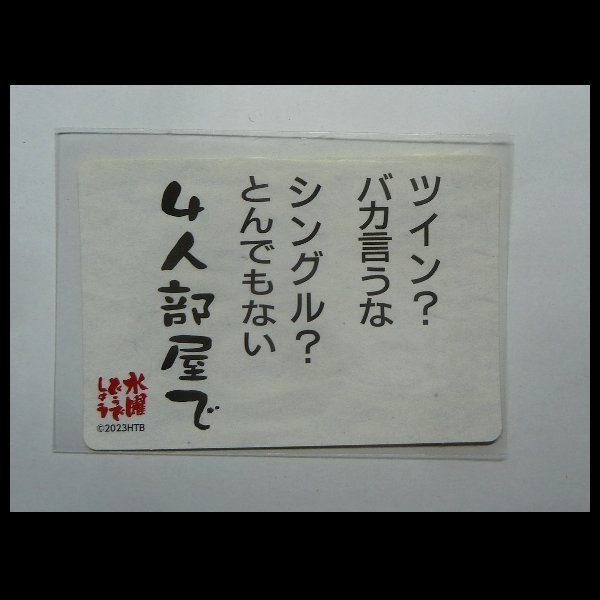 ツイン?
バカ言うな
シングル?
とんでもない
4人部屋で
水曜
どうでしょう
©2023HTB